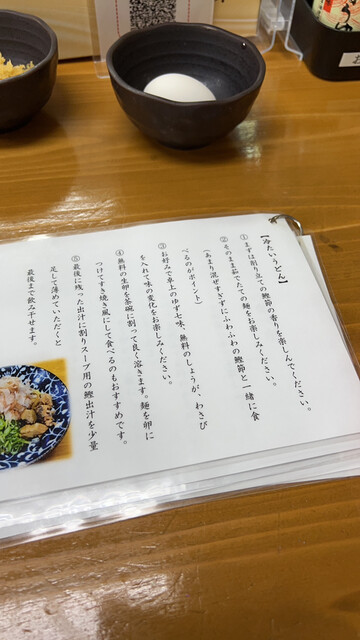 【冷たいうどん】
①まずは削り立ての鰹節の香りを楽しんでください。
②そのまま茹でたての麺をお楽しみください。
(あまり混ぜすぎずにふわふわの鰹節と一緒に食
べるのがポイント)
③お好みで卓上のゆず七味、無料のしょうが、わさび
を入れて味の変化をお楽しみください。
④無料の生卵を茶碗に割って良く溶きます。麺を卵に
つけてすき焼き風にして食べるのもおすすめです。
⑤最後に残った出汁に割りスープ用の鰹出汁を少量
足して薄めていただくと
最後まで飲み干せます。